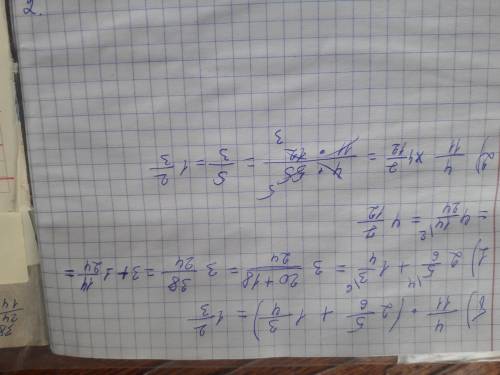 8) 4/11 · (2 5/6 + 1 3/4) = 1 2/3
1) 2 5/6 \4 + 1 3/4 \6 = 3 20+18/24 = 3 38/24 = 3+1 14/24 =
= 4 14/24 \2 = 4 7/12
2) 4/11 × 4 7/12 = 4 · 55/11 · 12 5 3 = 5/3 = 1 2/3
2.
38
24
14